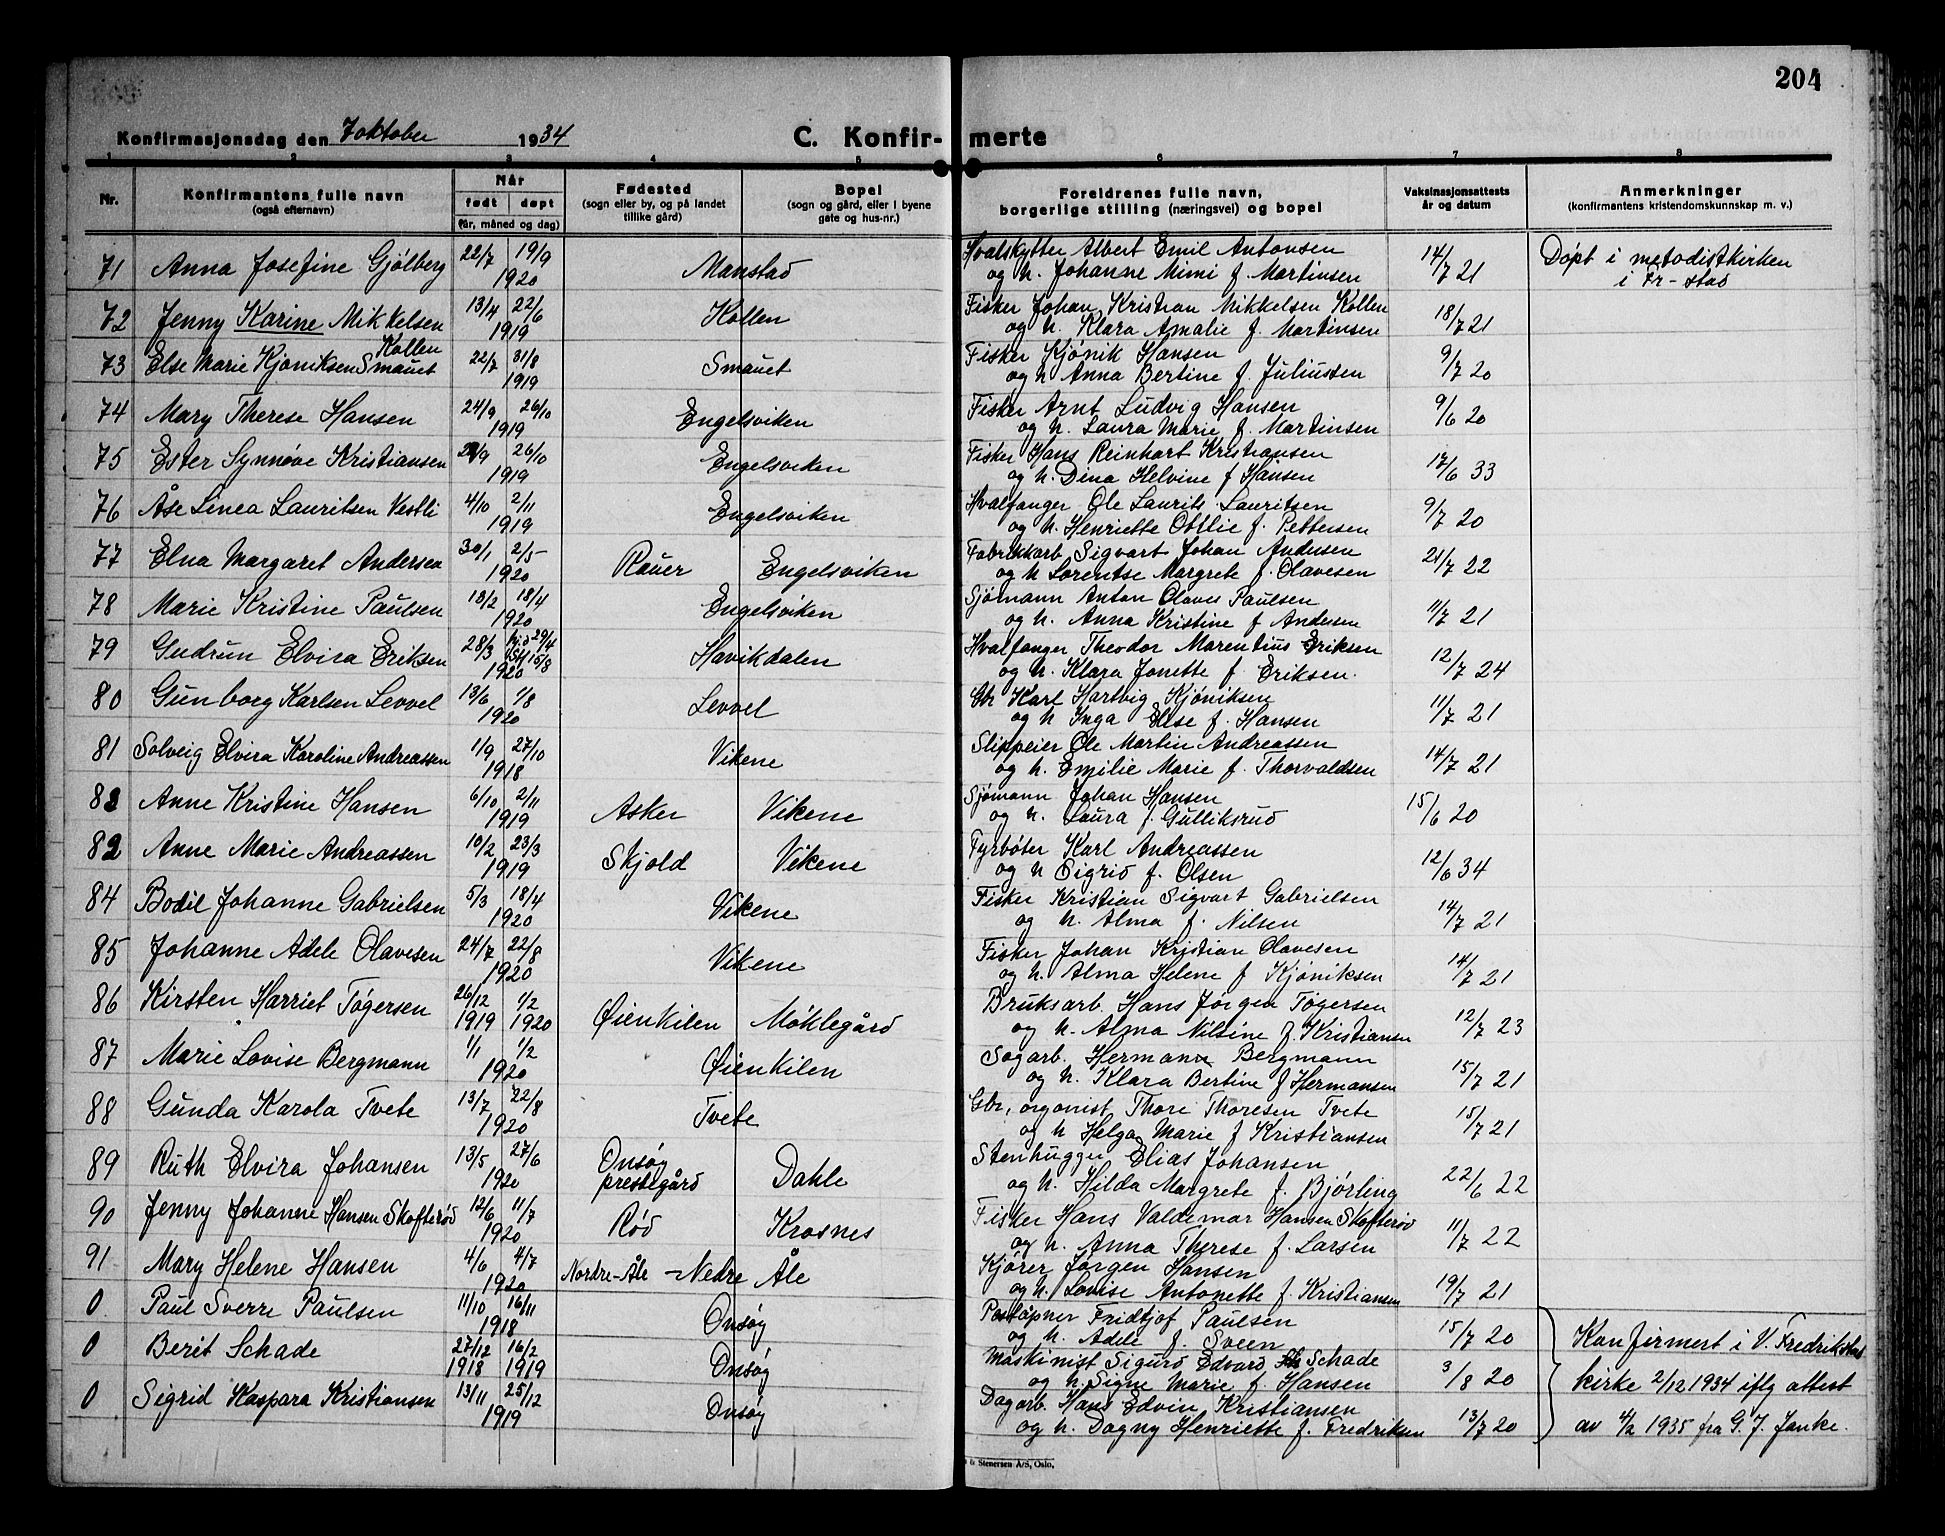 204
Konfirmasjonsdag den 7 oktober 1934
C. Konfirmerte
1 2 3 4 5 6 7 8
Nr. Konfirmantens fulle navn (også efternavn) Når født døpt (år, måned og dag) Fødested (sogn eller by, og på landet tillike gård) Bopel (sogn og gård, eller i byene gate og hus-nr.) Foreldrenes fulle navn, borgerlige stilling (næringsvei) og bopel Vaksinasjonsattests år og datum Anmerkninger (konfirmantens kristendomskunnskap m. v.)
71 Anna Josefine Gjølberg 22/7 19/9 1920 Manstad Hvalskytter Albert Emil Antonsen og h. Johanne Mimi f. Martinsen 14/7 21 Døpt i metodistkirken i Fr-stad
72 Jenny Karine Mikkelsen Kollen 13/4 22/6 1919 Kollen Fisker Johan Kristian Mikkelsen Kollen og h. Klara Amalie f. Martinsen 18/7 21
73 Else Marie Kjøniksen Smauet 22/7 31/8 1919 Smauet Fisker Kjønik Hansen og h Anna Bertine f. Juliussen 9/7 20
74 Mary Therese Hansen 24/9 26/10 1919 Engelsviken Fisker Arnt Ludvig Hansen og h. Laura Marie f. Martinsen 9/6 20
75 Ester Synnøve Kristiansen /9 26/10 1919 Engelsviken Fisker Hans Reinhart Kristiansen og h. Dina Helvine f Hansen 17/6 33
76 Åse Linea Lauritsen Vestli 4/10 2/11 1919 Engelsviken Hvalfanger Ole Laurits Lauritsen og h. Henriette Ottlie f. Pettersen 9/7 20
77 Elna Margaret Andersen 30/1 2/5 1920 Rauer Engelsviken Fabrikkarb Sigvart Johan Andersen og h Lorentse Margrete f. Olavesen 21/7 22
78 Marie Kristine Paulsen 18/2 18/4 1920 Engelsviken Sjømann Anton Olaves Paulsen og h. Anna Kristine f Andersen 11/7 21
79 Gudrun Elvira Eriksen 28/3 hjd 29/4 St 15/8 1920 Havikdalen Hvalfanger Theodor Marentius Eriksen og h. Klara Jonette f Eriksen. 12/7 24
80 Gunborg Karlsen Levvel 13/6 1/8 1920 Levvel Gbr Karl Hartvig Kjøniksen og h Inga Else f. Hansen 11/7 21
81 Solveig Elvira Karoline Andreassen 1/9 27/10 1918 Vikene Slippeier Ole Martin Andreassen og h. Emilie Marie f. Thorvaldsen 14/7 21
82 Anne Kristine Hansen 6/10 2/11 1919 Asker Vikene Sjømann Johan Hansen og h. Laura f. Gulliksrud 15/6 20
83 Anne Marie Andreassen 10/2 23/3 1919 Skjold Vikene Fyrbøter Karl Andreassen og h Sigrid f. Olsen 12/6 34
84 Bodil Johanne Gabrielsen 5/3 18/4 1920 Vikene Fisker Kristian Sigvart Gabrielsen og h. Alma f. Nilsen 14/7 21
85 Johanne Adele Olavesen 24/7 22/8 1920 Vikene Fisker Johan Kristian Olavesen og h. Alma Helene f Kjøniksen 14/7 21
86 Kirsten Harriet Tøgersen 26/12 1919 1/2 1920 Øienkilen Møklegård Bruksarb. Hans Jørgen Tøgersen og h. Alma Nilsine f. Kristiansen 12/7 23
87 Marie Lovise Bergmann 1/1 1/2 1920 Øienkilen Sagarb. Hermann Bergmann og h. Klara Bertine f Hermansen 15/7 21
88 Gunda Karola Tvete 13/7 22/8 1920 Tvete Gbr, organist Thore Thoresen Tvete og h Helga Marie f Kristiansen 15/7 21
89 Ruth Elvira Johansen 13/5 27/6 1920 Onsøy prestegård Dahle Stenhugger Elias Johansen og h. Hilda Margrete f. Bjørling 22/6 22
90 Jenny Johanne Hansen Skofterød 12/6 11/7 1920 Rød Krosnes Fisker Hans Valdemar Hansen Skofterød og h. Anna Therese f. Larsen 11/7 22
91 Mary Helene Hansen 4/6 4/7 1920 Nordre-Åle -Nedre Åle Kjører Jørgen Hansen og h. Lovise Antonette f. Kristiansen 19/7 21
0 Paul Sverre Paulsen 11/10 16/11 1918 Onsøy Poståpner Fridtjof Paulsen og h. Adele f. Sveen 15/7 20 Konfirmert i V. Fredrikstad
0 Berit Schade 27/12 1918 16/2 1919 Onsøy Maskinist Sigurd Edvard Schade og h. Signe Marie f. Hansen 3/8 20 kirke 2/12 1934 iflg attest
0 Sigrid Kaspara Kristiansen 13/11 25/12 1919 Onsøy Dagarb. Hans Edvin Kristiansen og h. Dagny Henriette f. Fredriksen 13/7 20 av 4/2 1935 fra G. J. Janke.
& Stenersen A/S, Oslo.